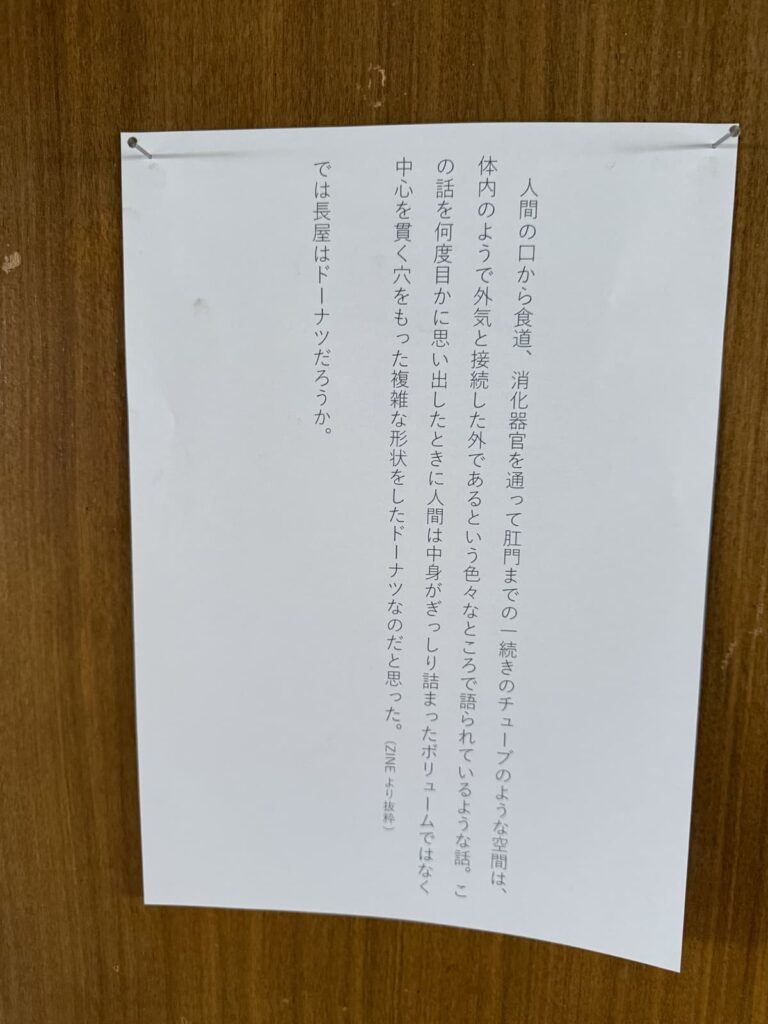 人間の口から食道、消化器官を通って肛門までの一続きのチューブのような空間は、
体内のようで外気と接続した外であるという色々なところで語られているような話。こ
の話を何度目かに思い出したときに人間は中身がぎっしり詰まったボリュームではなく
中心を貫く穴をもった複雑な形状をしたドーナツなのだと思った。（ZINEより抜粋）
では長屋はドーナツだろうか。